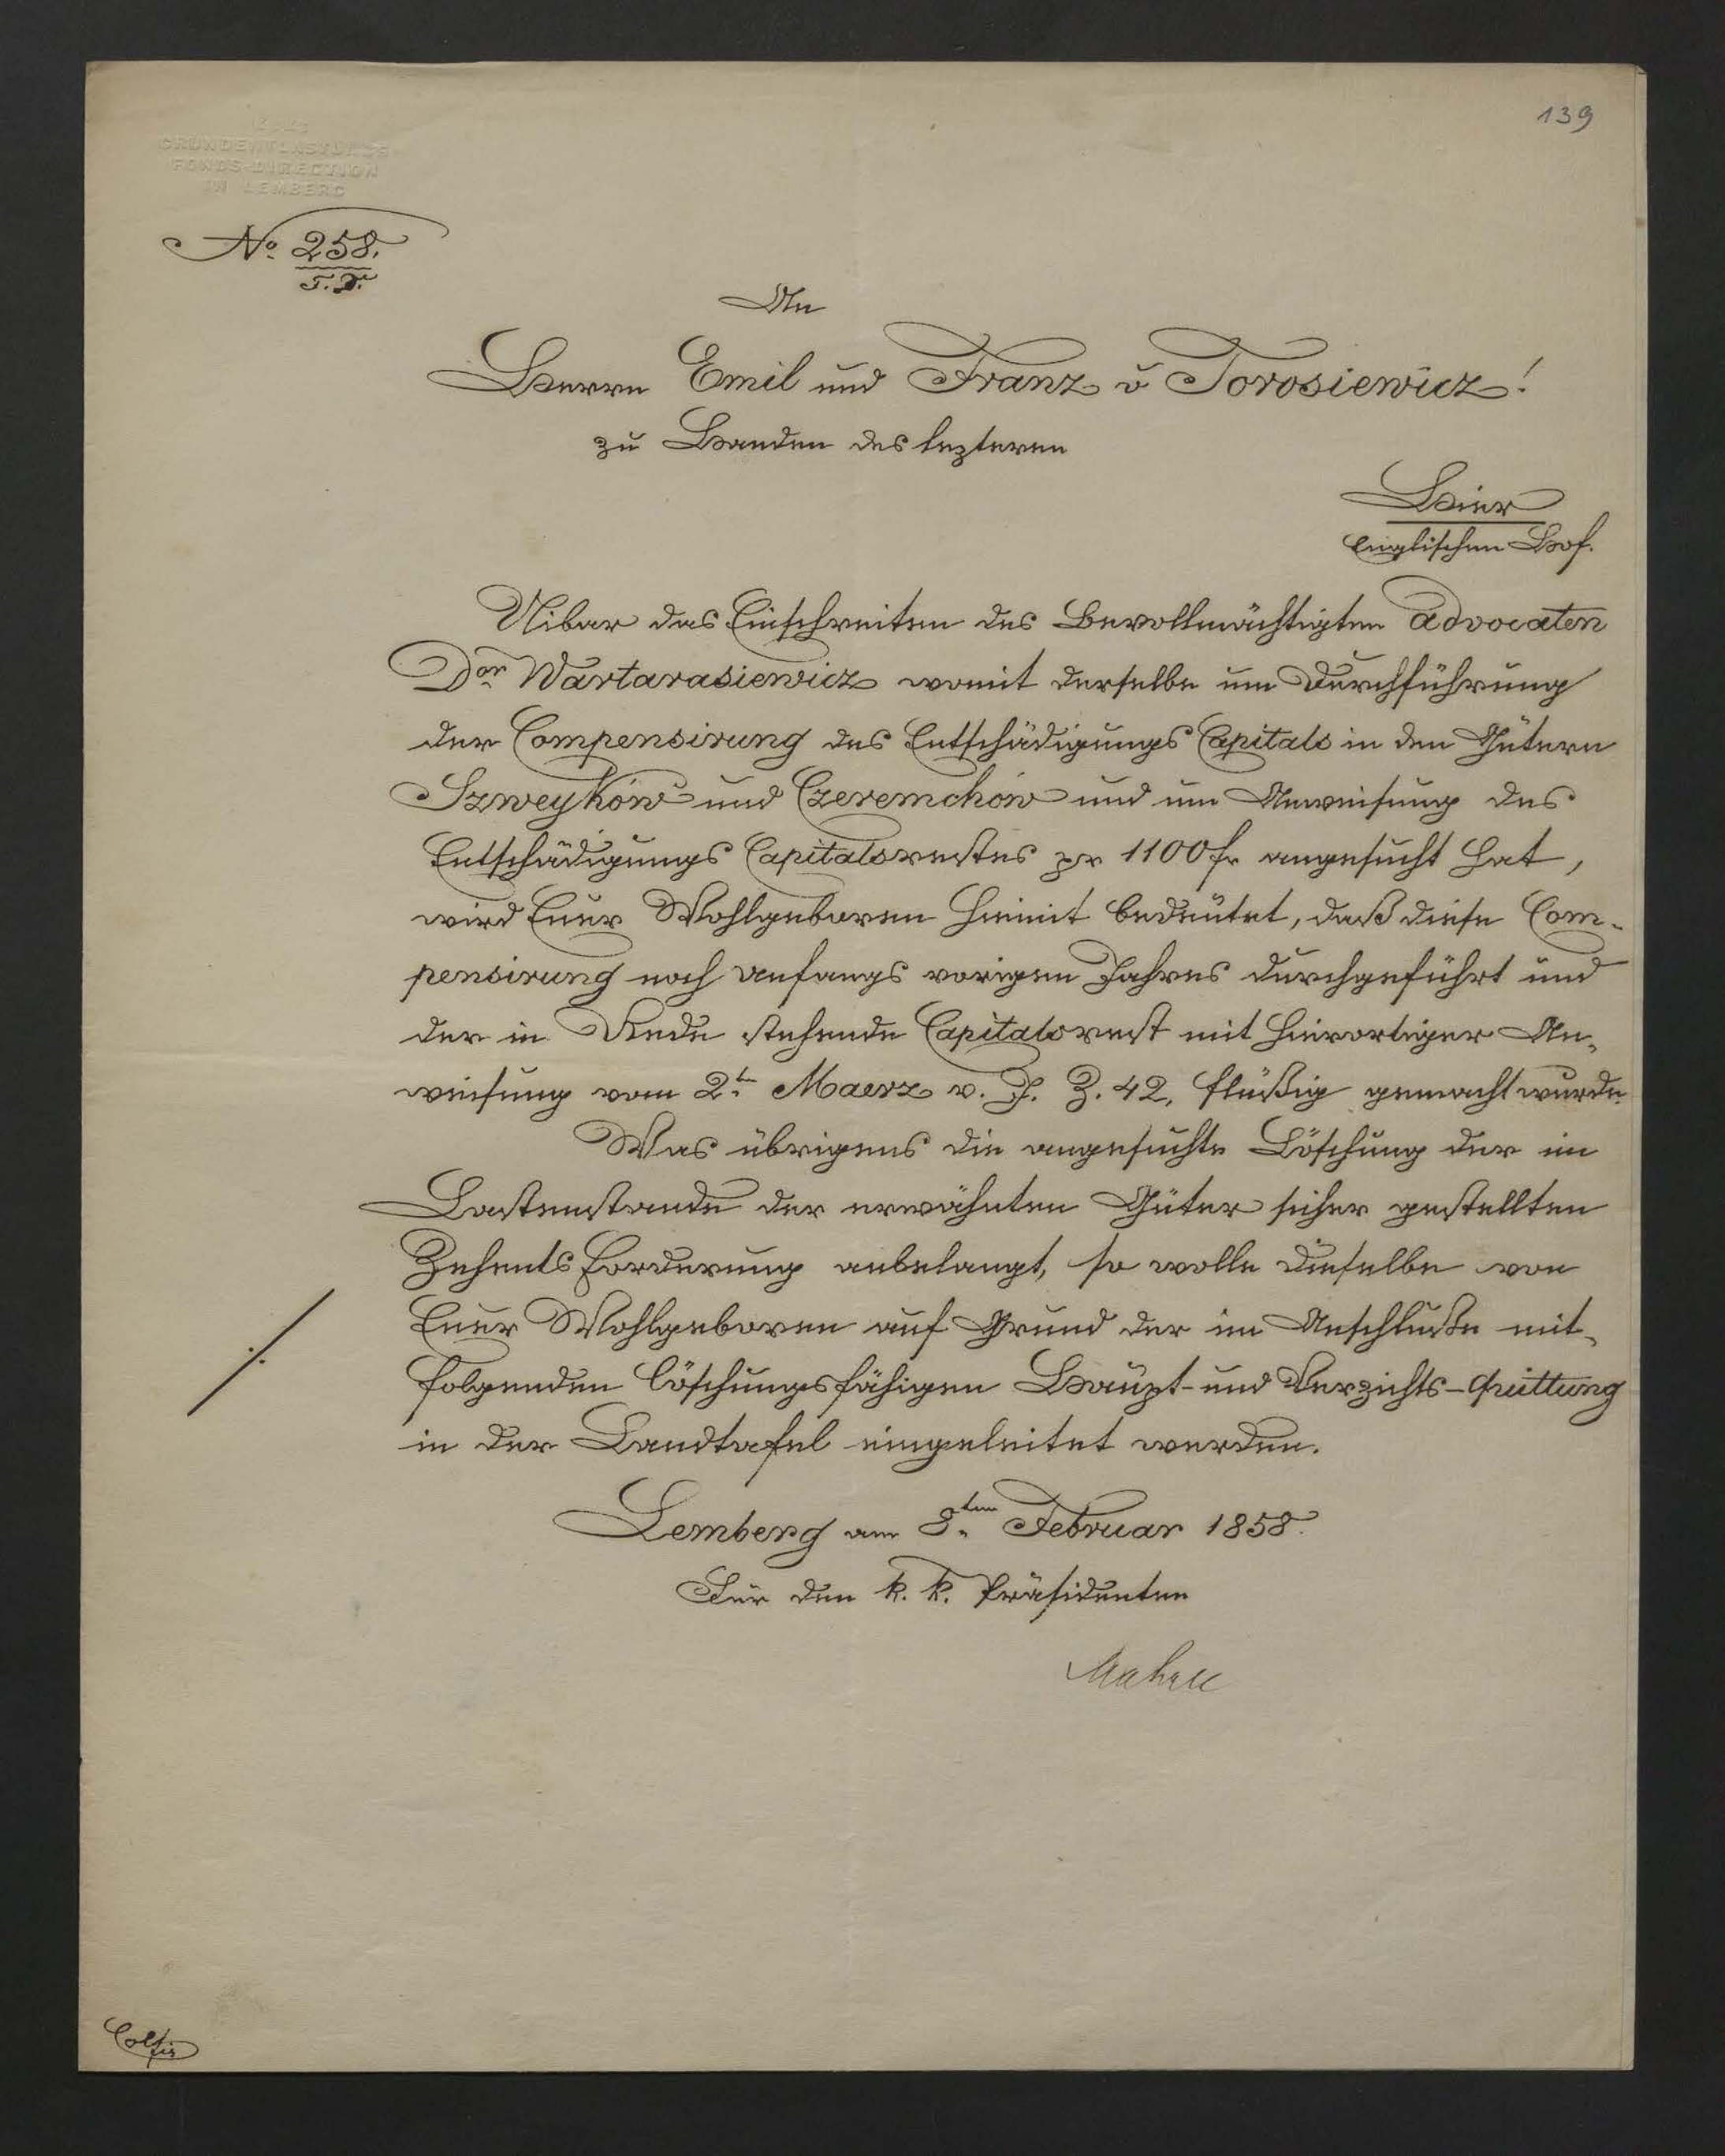 139
GRUNDENTLASTUNGS
FONDS-DIRECTION
IN LEMBERG
No. 258.
F. D.
An
Herrn Emil und Franz v Torosiewicz!
zu Handen des lezteren
Hier
Englischen Hof.
Uiber das Einschreiten des Bevollmächtigten Advocaten
Dor Wartarasiewicz womit derselbe um Durchführung
der Compensirung des Entschädigungs Capitals in den Gütern
Szweyków und Czeremchów und um Anweisung des
Entschädigungs Capitalsrestes pr 1100 fr angesucht hat,
wird Euer Wohlgeboren hiemit bedeutet, daß diese Com-
pensirung noch Anfangs vorigen Jahres durchgeführt und
der in Rede stehende Capitalsrest mit hierortiger An-
weisung vom 2tn Maerz v. J. Z. 42, flüßig gemacht wurde.
Was übrigens die angesuchte Löschung der im
Lastenstande der erwähnten Güter sicher gestellten
Zehents Forderung anbelangt, so wolle dieselbe von
Euer Wohlgeboren auf Grund der im Anschluße mit-
folgenden löschungsfähigen Haupt- und Verzichts-Quittung
./.
in der Landtafel eingeleitet werden.
Lemberg am 8ten Februar 1858.
Für den k. k. Präsidenten